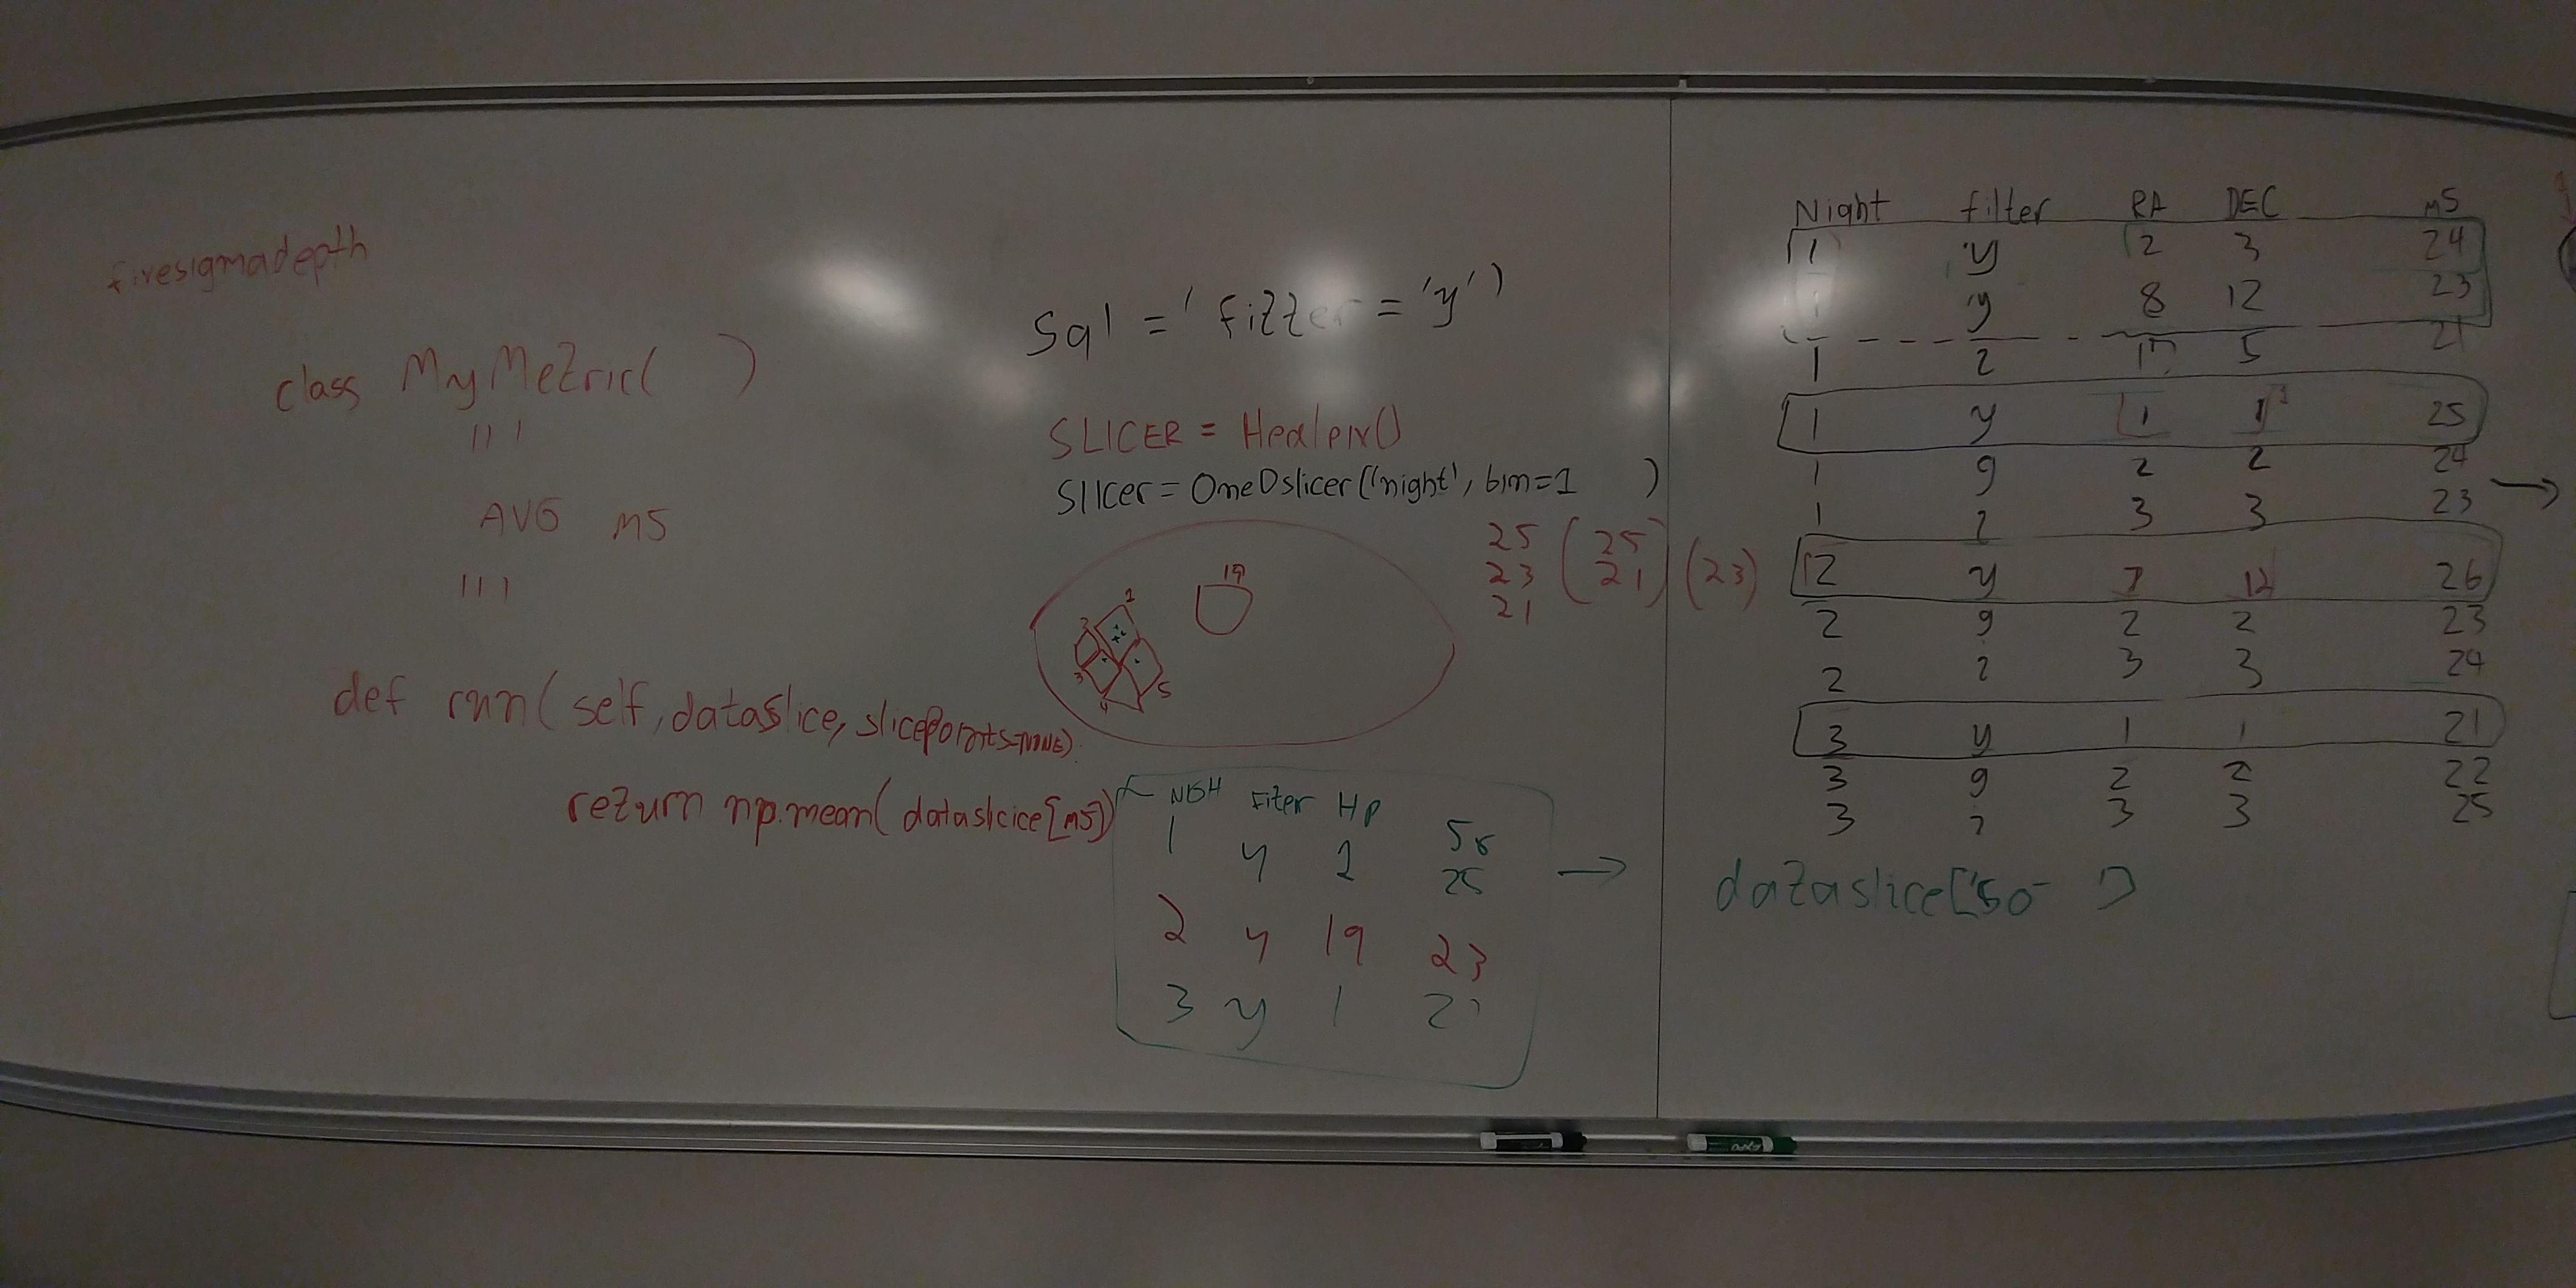 fivesigmadepth
class MyMetric( )
'''
AVG m5
'''
def run(self, dataslice, slicePoints=NONE):
return np.mean(dataslcice[m5])
Sql = 'filter = 'y')
SLICER = Healpix()
Slicer = OneDslicer('night', bin=1 )
25 (25
23 21) (23)
21
19
1
2
3
4
5
NIGH Filter HP 5σ
1 y 1 25
2 y 19 23
3 y 1 21
Night filter RA DEC m5
1 y 2 3 24
1 y 8 12 23
1 2 17 5 21
1 y 1 1 25
1 g 2 2 24
1 2 3 3 23
2 y 7 12 26
2 g 2 2 23
2 2 3 3 24
3 y 1 1 21
3 g 2 2 22
3 2 3 3 25
dataslice['5σ ']